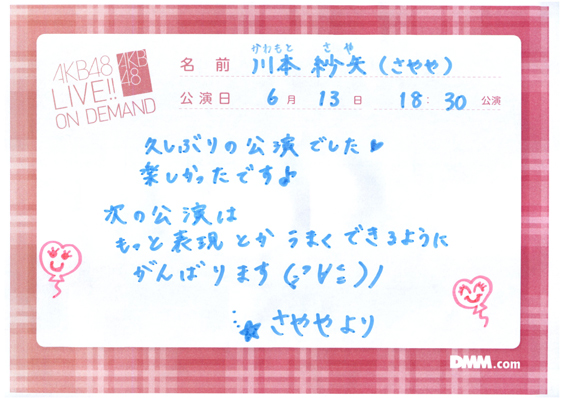 AKB48
LIVE!!
ON DEMAND
AKB
48
かわもと さや
名前 川本 紗矢(さやや)
公演日 6月 13日 18:30 公演
久しぶりの公演でした♥
楽しかったです♪
次の公演は
もっと表現とかうまくできるように
がんばります(:°∀°:)/
☆さややより
DMM.com